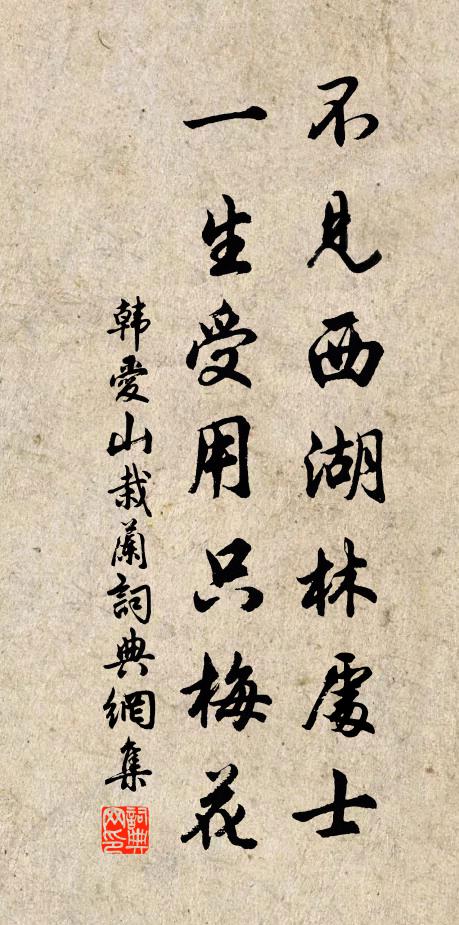 不見西湖林處士
一生受用只梅花
韩愛山栽蘭詞典網集
詞典网印